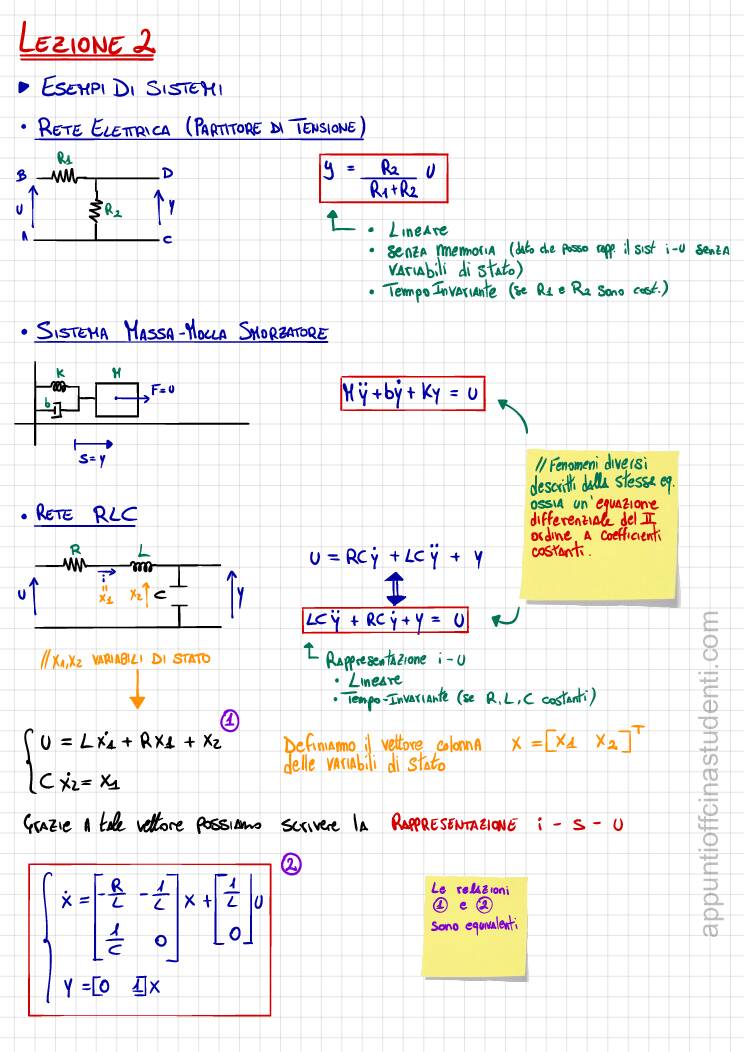 LEZIONE 2
▶ ESEMPI DI SISTEMI
• RETE ELETTRICA (PARTITORE DI TENSIONE)
R1
B
D
U
R2
Y
A
C
y = R2 / (R1+R2) U
• LINEARE
• SENZA MEMORIA (dato che posso rapp il sist i-u senza
VARIABILI di STATO)
• TEMPO INVARIANTE (se R1 e R2 sono cost.)
• SISTEMA MASSA-MOLLA SMORZATORE
K
M
b
F=U
S=Y
Mÿ+bẏ+Ky = U
// Fenomeni diversi
descritti dalla stessa eq.
ossia un'equazione
differenziale del II
ordine a coefficienti
costanti.
• RETE RLC
R
L
U
i
=
x1
x2
C
Y
U = RCẏ + LCÿ + y
LCÿ + RCẏ + y = U
RAPPRESENTAZIONE i-u
• LINEARE
• TEMPO-INVARIANTE (se R, L, C costanti)
// x1,x2 VARIABILI DI STATO
U = Lẋ1 + Rx1 + x2 ①
Cẋ2 = x1
Definiamo il vettore colonna x = [x1 x2]ᵀ
delle VARIABILI di STATO
GRAZIE A tale vettore POSSIAMO SCRIVERE la RAPPRESENTAZIONE i - s - u
②
ẋ = [-R/L -1/L; 1/C 0] x + [1/L; 0] U
Y = [0 1]x
Le relazioni
① e ②
sono equivalenti
appuntioffcinastudenti.com